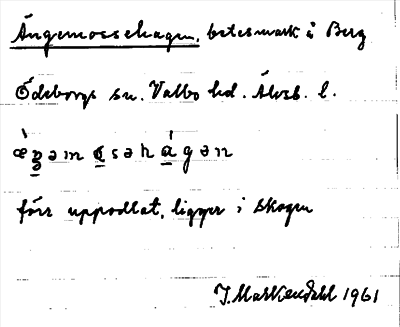 Ängemossehagen, betesmark i Berg
Ödeborgs sn. Valbo hd. Älvsb. l.
förr uppodlat, ligger i skogen
J. Markendahl 1961